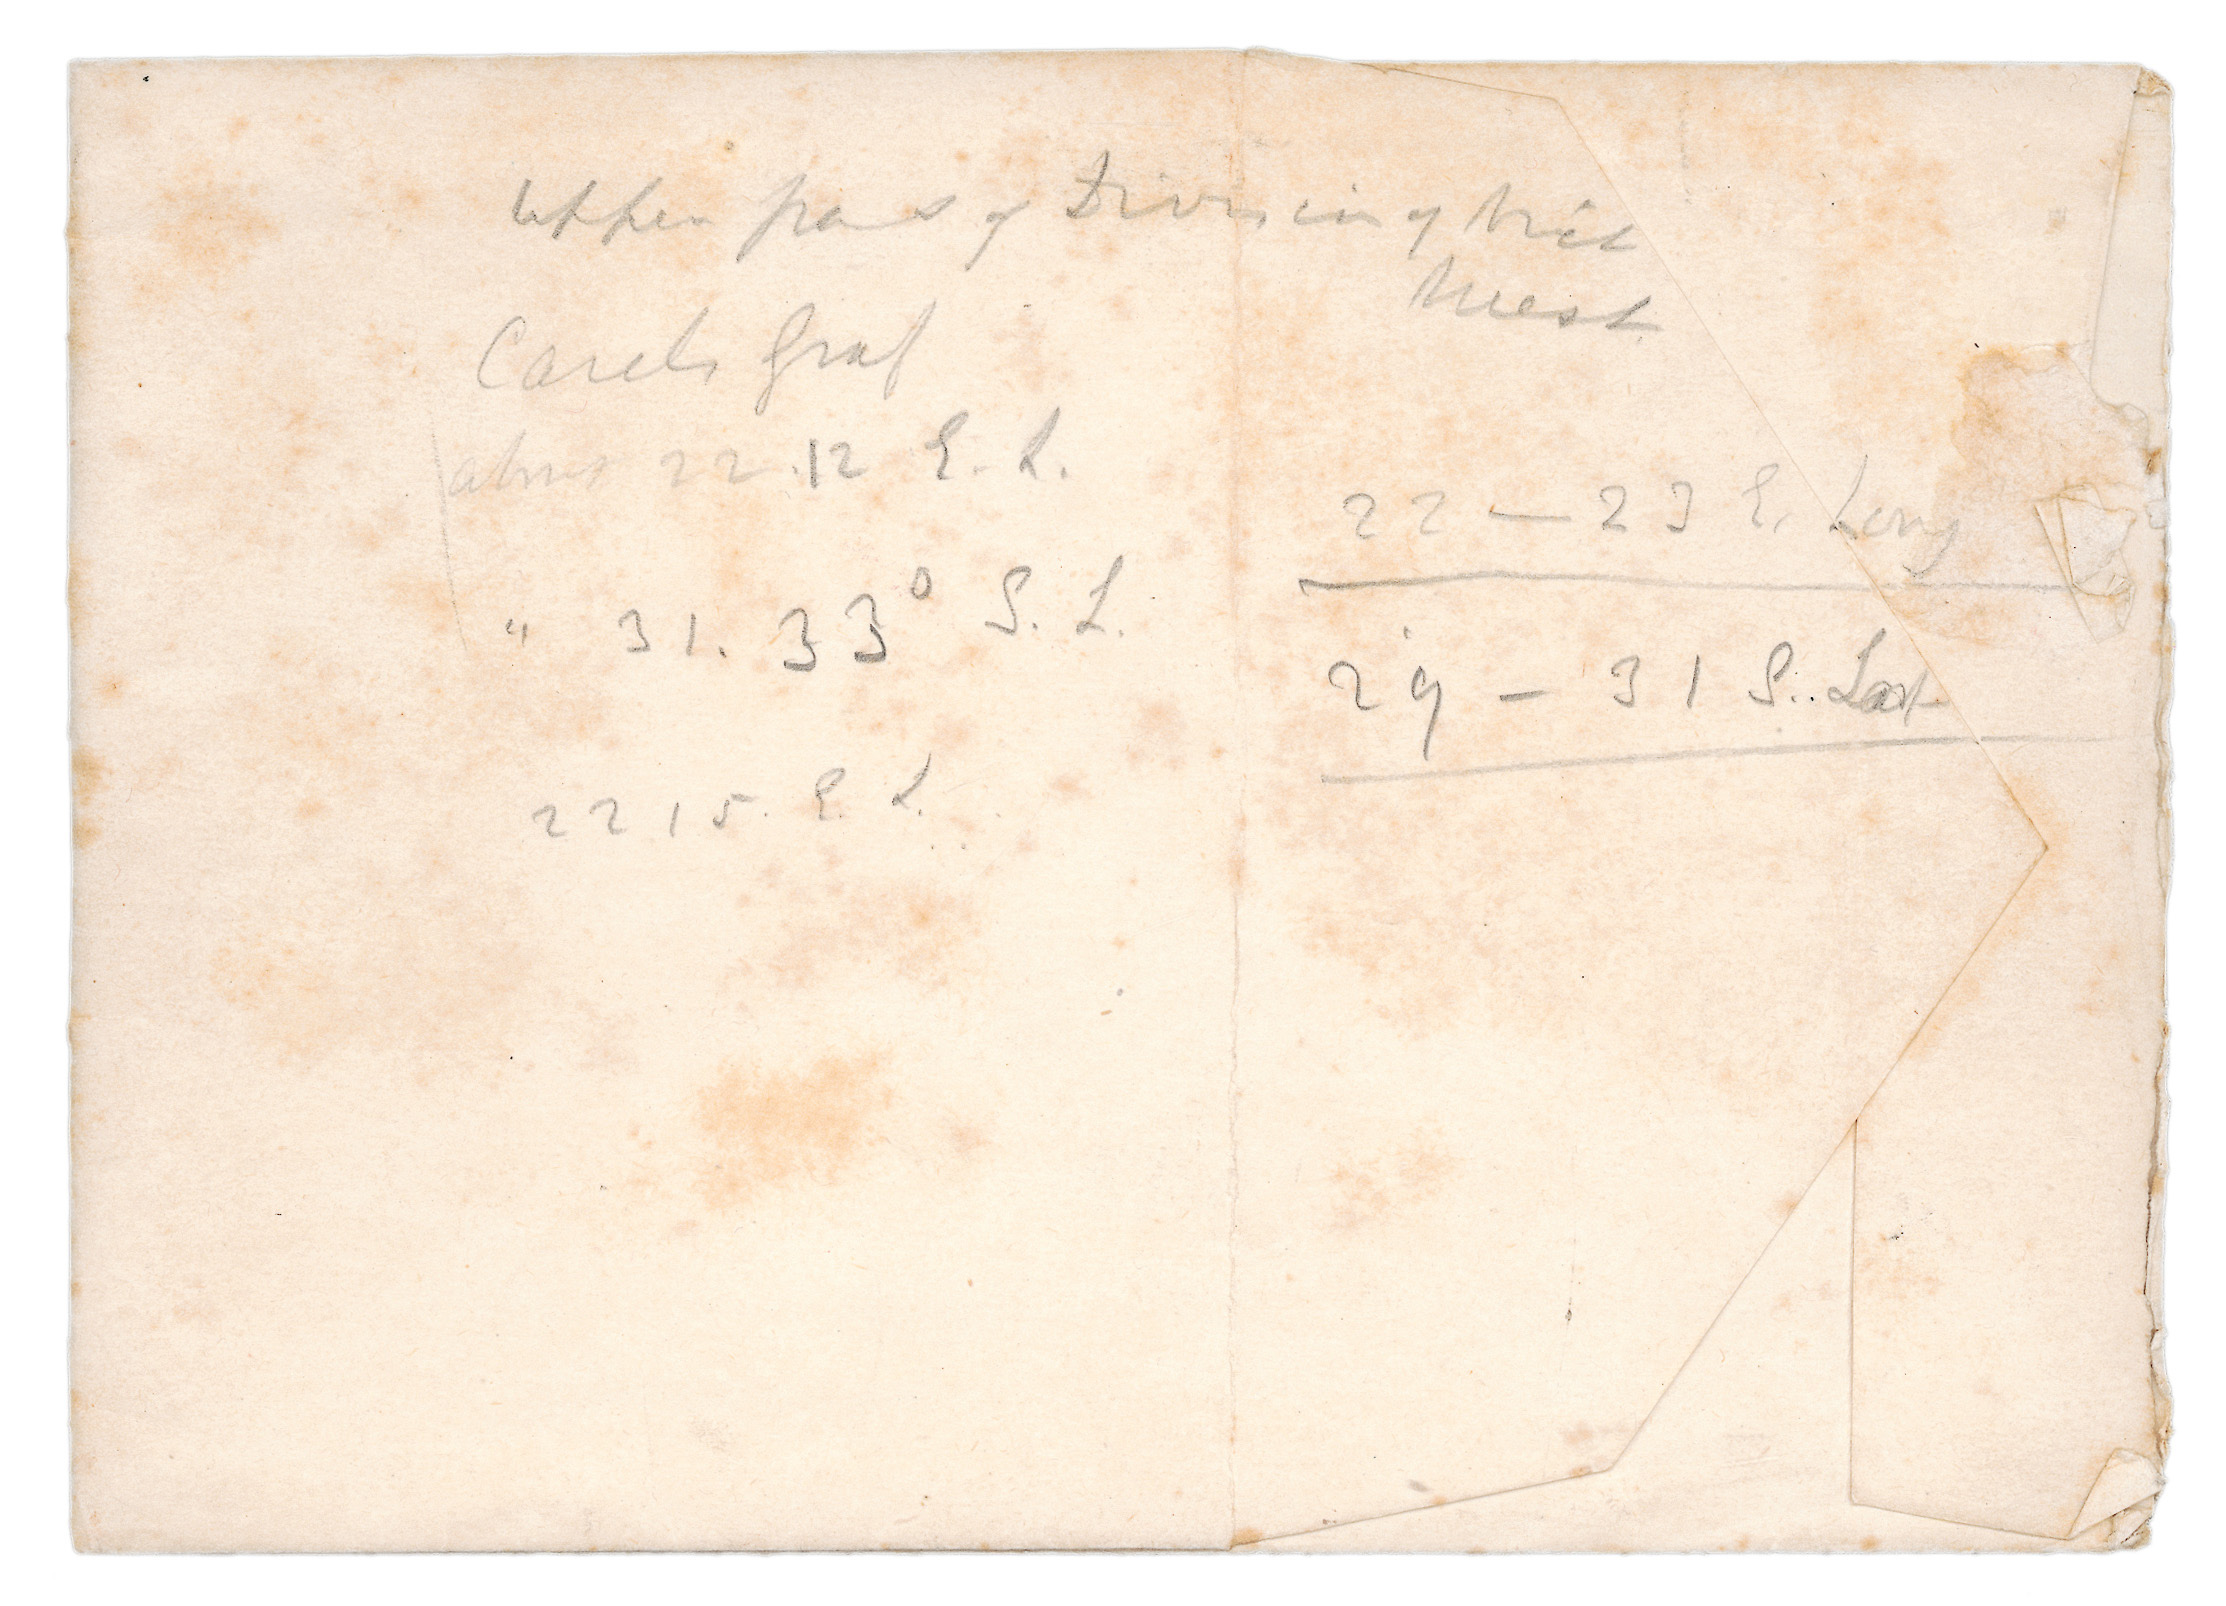 Upper part of Division of Vict
West.
Carels Graf
about 22.12 E. L.
" 31. 33° S. L.
22 15. E. L.
22 — 23 E. Long
29 — 31 S. Lat